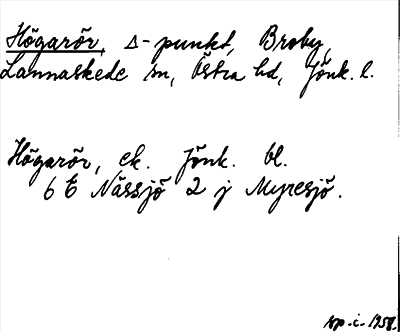 Högarör, Δ-punkt, Broby,
Lannaskede sn, Östra hd, Jönk. l.
Högarör, ek. Jönk. bl.
6 E Nässjö 2 j Myresjö.
1958.